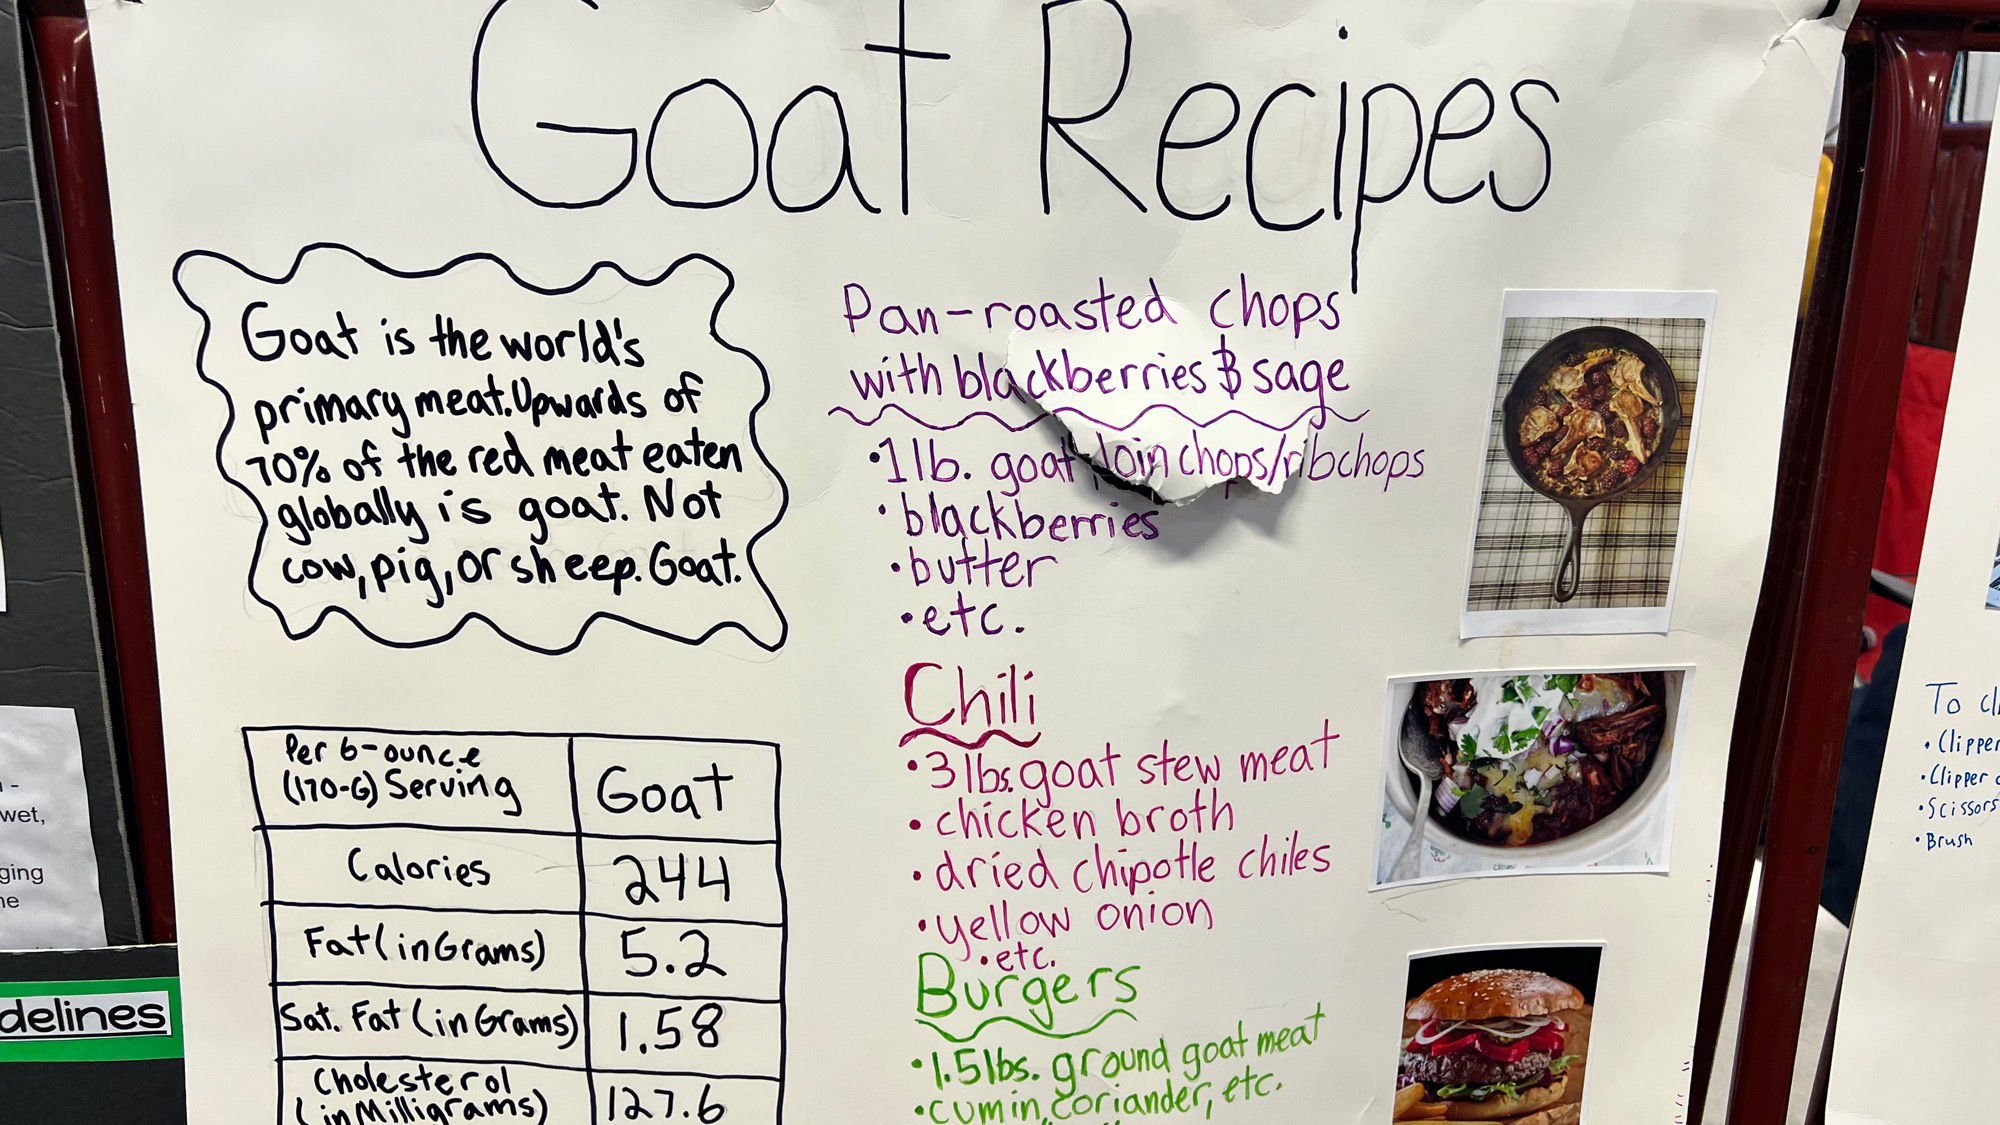 Goat Recipes
Goat is the world's
primary meat. Upwards of
70% of the red meat eaten
globally is goat. Not
cow, pig, or sheep. Goat.
Per 6-ounce
(170-G) Serving
Goat
Calories
244
Fat (in Grams)
5.2
Sat. Fat (in Grams)
1.58
Cholesterol
(in Milligrams)
127.6
Pan-roasted chops
with blackberries & sage
• 1 lb. goat loin chops/ribchops
• blackberries
• butter
• etc.
Chili
• 3 lbs. goat stew meat
• chicken broth
• dried chipotle chiles
• yellow onion
• etc.
Burgers
• 1.5 lbs. ground goat meat
• cumin, coriander, etc.
wet,
ging
delines
To cl
• Clipper
• Clipper
• Scissors
• Brush